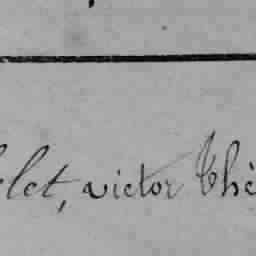 let, victor Thé